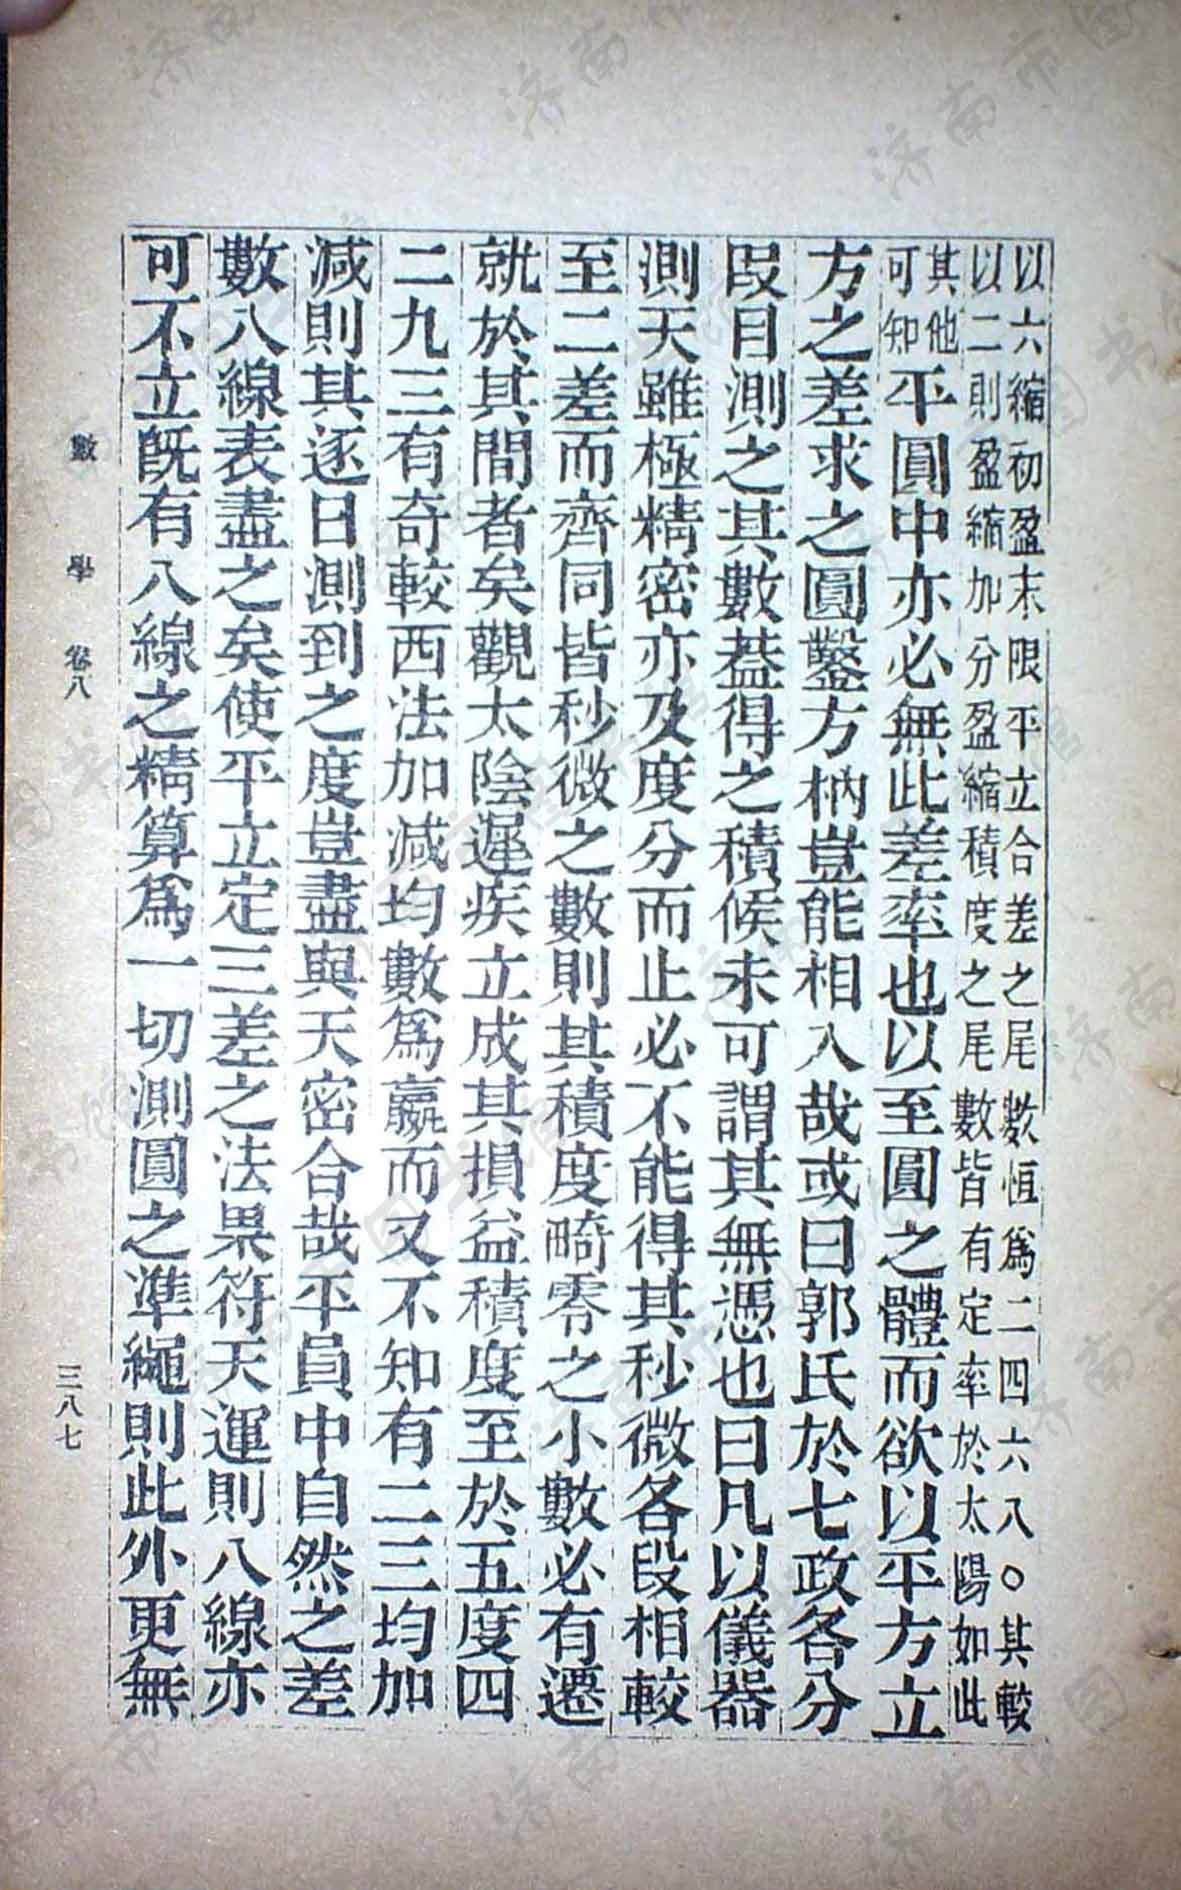 以六縮初盈末限平立合差之尾數恆爲二四六八〇其較
以二則盈縮加分盈縮積度之尾數皆有定率於太陽如此
其他
可知
平圓中亦必無此差率也以至圓之體而欲以平方立
方之差求之圓鑿方枘豈能相入哉或曰郭氏於七政各分
段目測之其數葢得之積候未可謂其無憑也曰凡以儀器
測天雖極精密亦及度分而止必不能得其秒微各段相較
至二差而齊同皆秒微之數則其積度畸零之小數必有遷
就於其間者矣觀太陰遲疾立成其損益積度至於五度四
二九三有奇較西法加減均數爲贏而又不知有二三均加
減則其逐日測到之度豈盡與天密合哉平員中自然之差
數八線表盡之矣使平立定三差之法果符天運則八線亦
可不立既有八線之精算爲一切測圓之準繩則此外更無
數學 卷八
三八七
济南市图书馆